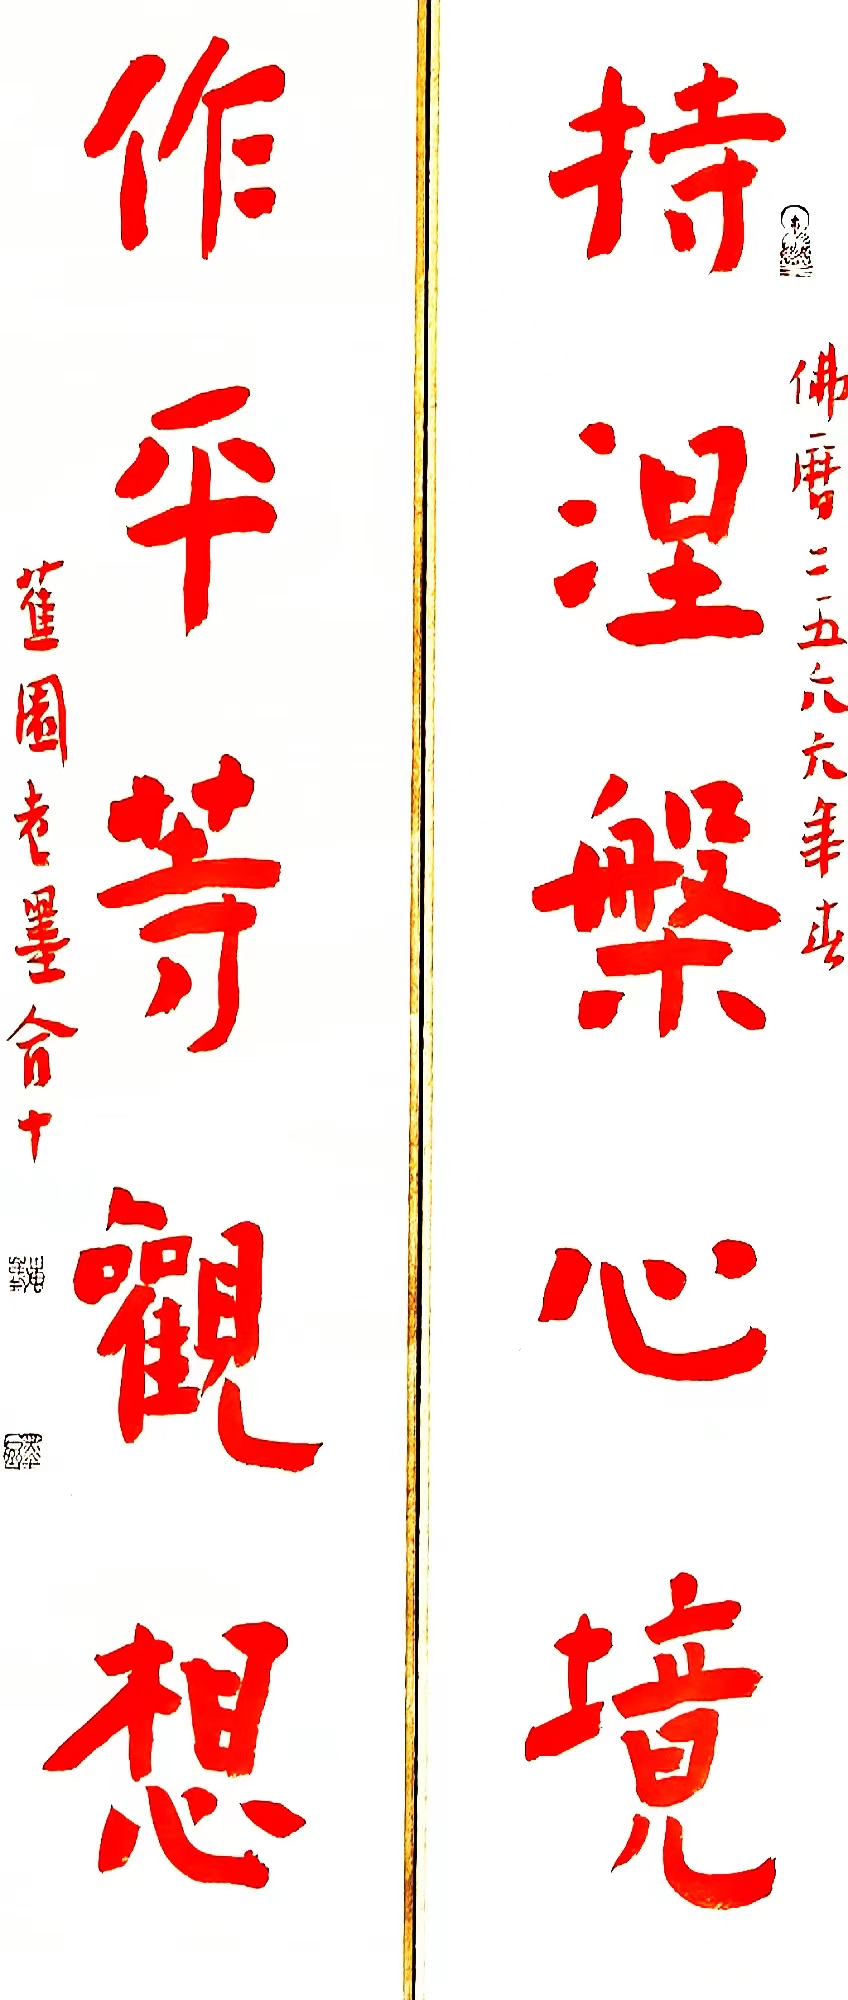 持涅槃心境
佛曆二五六六年春
作平等觀想
蕉園老墨合十